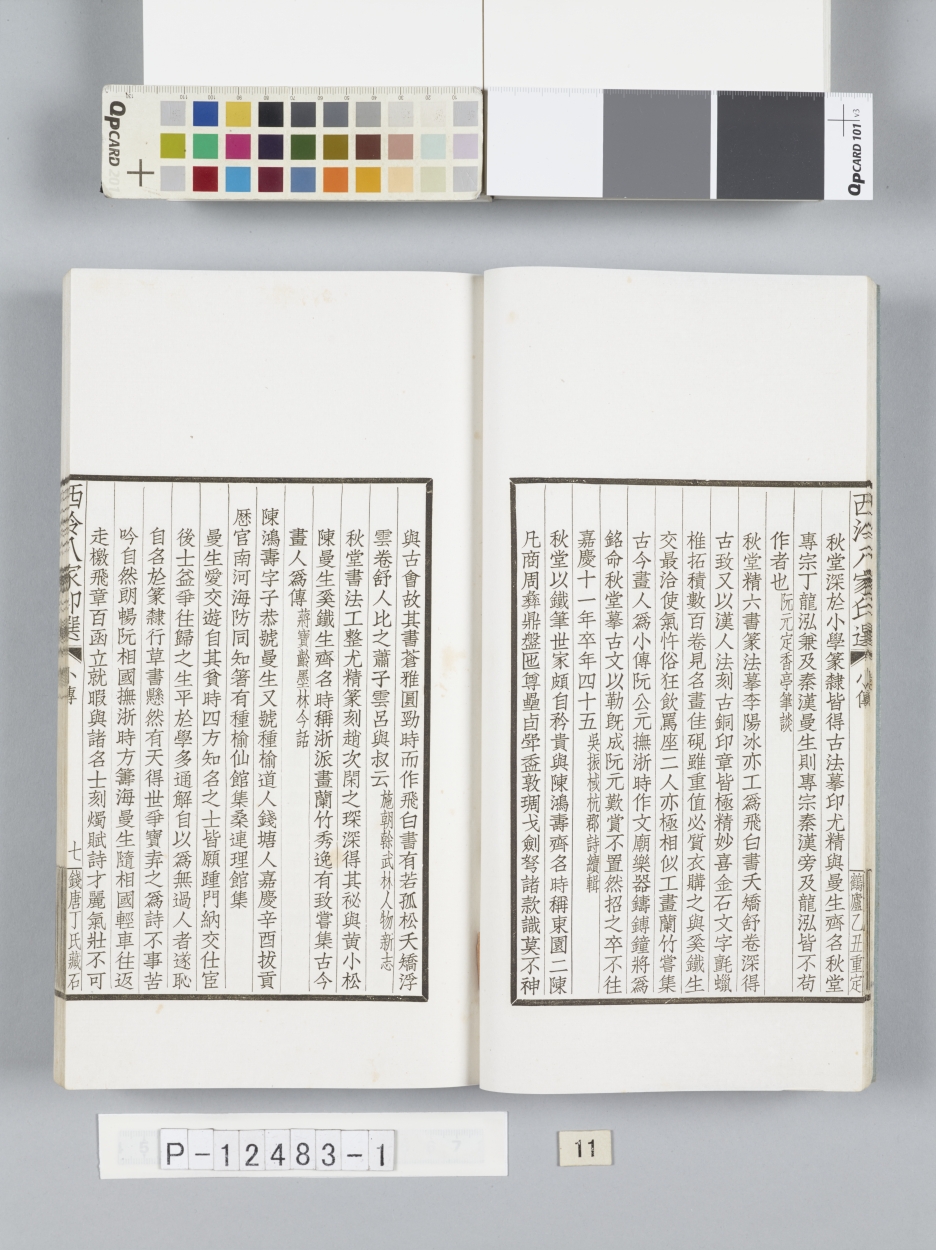 QPCARD 201
QPCARD 101 v3
西泠八家印選
小傳
鶴廬乙丑重定
秋堂深於小學篆隸皆得古法摹印尤精與曼生齊名秋堂
專宗丁龍泓兼及秦漢曼生則專宗秦漢旁及龍泓皆不茍
作者也阮元定香亭筆談
秋堂精六書篆法摹李陽冰亦工爲飛白書夭矯舒卷深得
古致又以漢人法刻古銅印章皆極精妙喜金石文字氈蠟
椎拓積數百卷見名畫佳硯雖重值必質衣購之與奚鐵生
交最洽使氣忤俗狂飲駡座二人亦極相似工畫蘭竹嘗集
古今畫人爲小傳阮公元撫浙時作文廟樂器鑄鎛鐘將爲
銘命秋堂摹古文以勒旣成阮元歎賞不置然招之卒不往
嘉慶十一年卒年四十五吳振棫杭郡詩續輯
秋堂以鐵筆世家頗自矜貴與陳鴻壽齊名時稱東園二陳
凡商周彝鼎盤匜尊罍卣斝盉敦琱戈劍弩諸款識莫不神
與古會故其書蒼雅圓勁時而作飛白書有若孤松夭矯浮
雲卷舒人比之蕭子雲呂與叔云施朝榦武林人物新志
秋堂書法工整尤精篆刻趙次閑之琛深得其秘與黃小松
陳曼生奚鐵生齊名時稱浙派畫蘭竹秀逸有致嘗集古今
畫人爲傳蔣寶齡墨林今話
陳鴻壽字子恭號曼生又號種榆道人錢塘人嘉慶辛酉拔貢
歷官南河海防同知箸有種榆仙館集桑連理館集
曼生愛交遊自其貧時四方知名之士皆願踵門納交仕宦
後士益爭往歸之生平於學多通解自以爲無過人者遂恥
自名於篆隸行草書懸然有天得世爭寶弆之爲詩不事苦
吟自然朗暢阮相國撫浙時方籌海曼生隨相國輕車往返
走檄飛章百函立就暇與諸名士刻燭賦詩才麗氣壯不可
西泠八家印選
小傳
七
錢唐丁氏藏石
P-12483-1
11